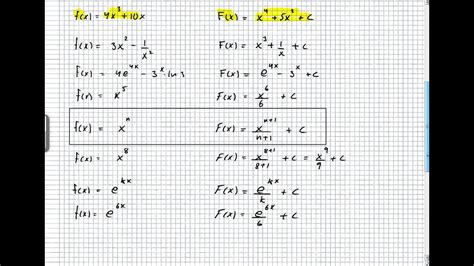 f(x) = 4x³ + 10x F(x) = x⁴ + 5x² + c
f(x) = 3x² - 1/x² F(x) = x³ + 1/x + c
f(x) = 4e^(4x) - 3^x · ln 3 F(x) = e^(4x) - 3^x + c
f(x) = x⁵ F(x) = x⁶/6 + c
f(x) = x^n F(x) = x^(n+1)/(n+1) + c
f(x) = x⁸ F(x) = x^(8+1)/(8+1) + c = x⁹/9 + c
f(x) = e^(kx) F(x) = e^(kx)/k + c
f(x) = e^(6x) F(x) = e^(6x)/6 + c